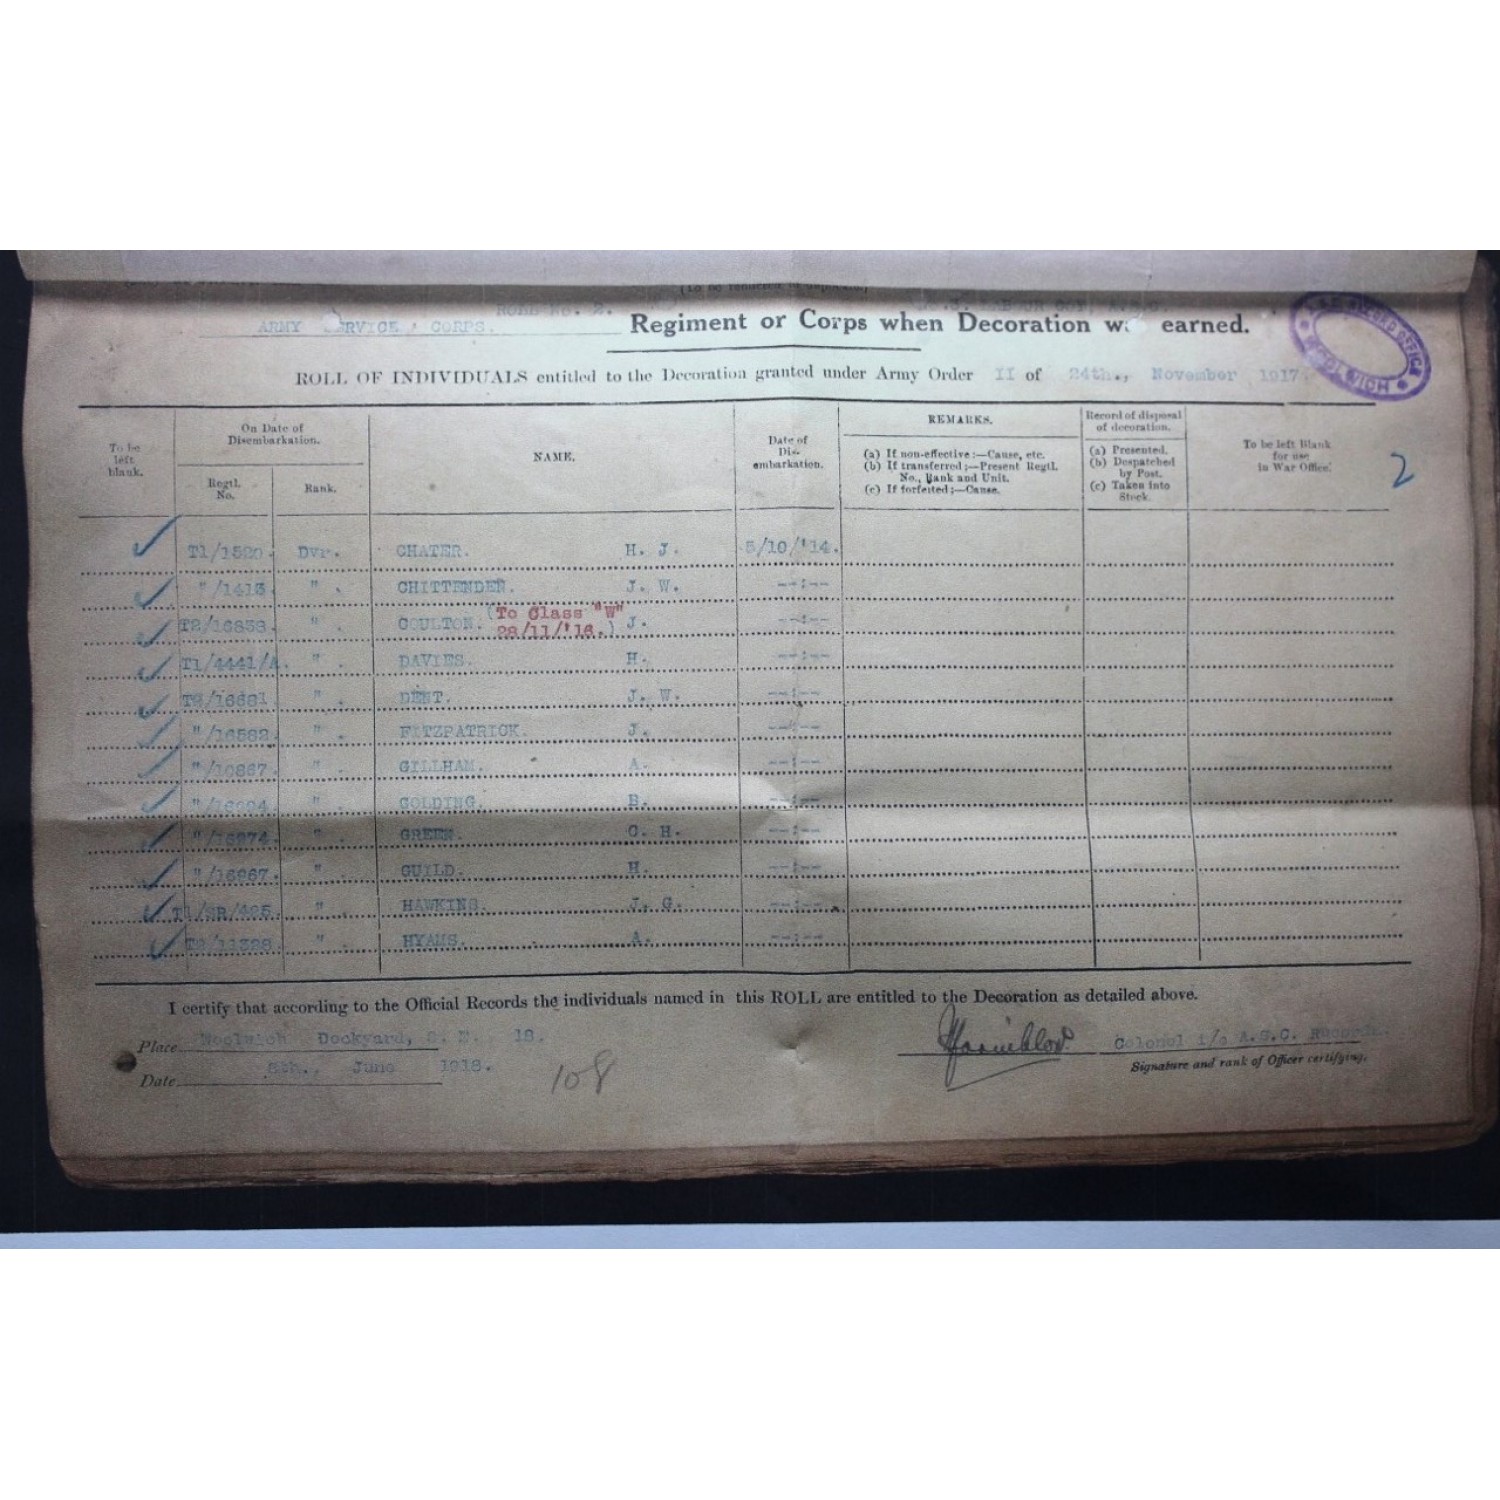 ROLL No. 2.
ARMY SERVICE CORPS. Regiment or Corps when Decoration was earned.
ROLL OF INDIVIDUALS entitled to the Decoration granted under Army Order II of 24th., November 1917.
To be left blank.
On Date of Disembarkation.
Regtl. No.
Rank.
NAME.
Date of Dis- embarkation.
REMARKS.
(a) If non-effective:—Cause, etc.
(b) If transferred;—Present Regtl. No., Rank and Unit.
(c) If forfeited;—Cause.
Record of disposal of decoration.
(a) Presented.
(b) Despatched by Post.
(c) Taken into Stock.
To be left Blank for use in War Office.
2
T1/1520. Dvr. CHATER. H. J. 5/10/'14.
"/1413. " . CHITTENDEN. J. W. --:--
T2/16838. " . COULTON. (To Class "W" 28/11/'16.) J. --:--
T1/4441/A. " . DAVIES. H. --:--
T2/16681. " . DENT. J. W. --:--
"/16582. " . FITZPATRICK. J. --:--
"/10867. " . GILLHAM. A. --:--
" . GOLDING. B. --:--
"/16274. " . GREEN. C. H. --:--
"/16267. " . GUILD. H. --:--
T1/SR/495. " . HAWKINS. J. G. --:--
T2/11328. " . HYAMS. A. --:--
I certify that according to the Official Records the individuals named in this ROLL are entitled to the Decoration as detailed above.
Place Woolwich Dockyard, S. E. 18.
Colonel i/c A.S.C. Records.
Signature and rank of Officer certifying.
Date 8th., June 1918.
108
A.S.C. RECORD OFFICE WOOLWICH